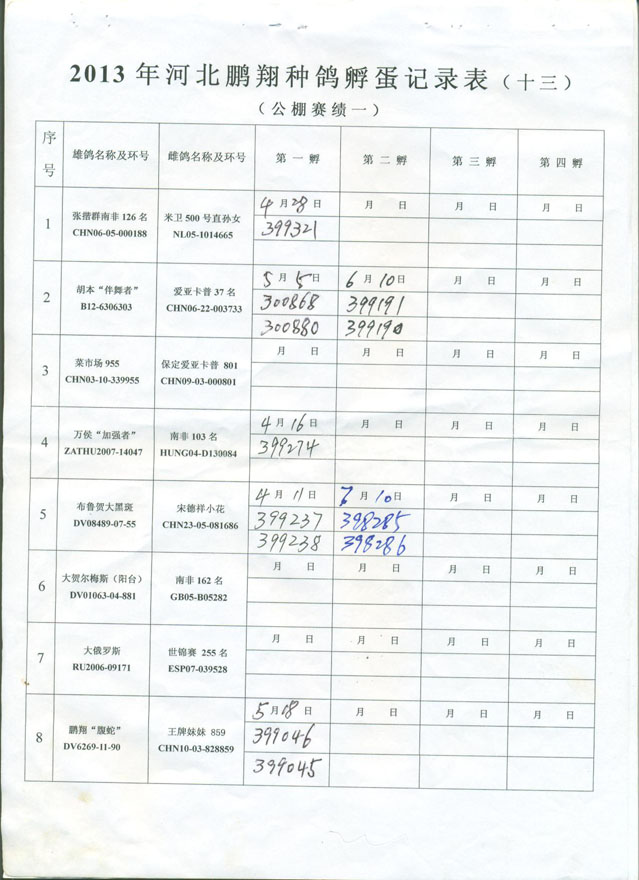 2013年河北鹏翔种鸽孵蛋记录表（十三）
（公棚赛绩一）
序号 雄鸽名称及环号 雌鸽名称及环号 第一孵 第二孵 第三孵 第四孵
1 张撍群南非126名 米卫500号直孙女 4月28日 月 日 月 日 月 日
CHN06-05-000188 NL05-1014665 399321
2 胡本“伴舞者” 爱亚卡普37名 5月5日 6月10日 月 日 月 日
B12-6306303 CHN06-22-003733 300868 399191
300880 399190
3 菜市场955 保定爱亚卡普 801 月 日 月 日 月 日 月 日
CHN03-10-339955 CHN09-03-000801
4 万侯“加强者” 南非103名 4月16日 月 日 月 日 月 日
ZATHU2007-14047 HUNG04-D130084 399274
5 布鲁贺大黑斑 宋德祥小花 4月11日 7月10日 月 日 月 日
DV08489-07-55 CHN23-05-081686 399237 398285
399238 398286
6 大贺尔梅斯（阳台） 南非162名 月 日 月 日 月 日 月 日
DV01063-04-881 GB05-B05282
7 大俄罗斯 世锦赛 255名 月 日 月 日 月 日 月 日
RU2006-09171 ESP07-039528
8 鹏翔“腹蛇” 王牌妹妹 859 5月18日 月 日 月 日 月 日
DV6269-11-90 CHN10-03-828859 399046
399045